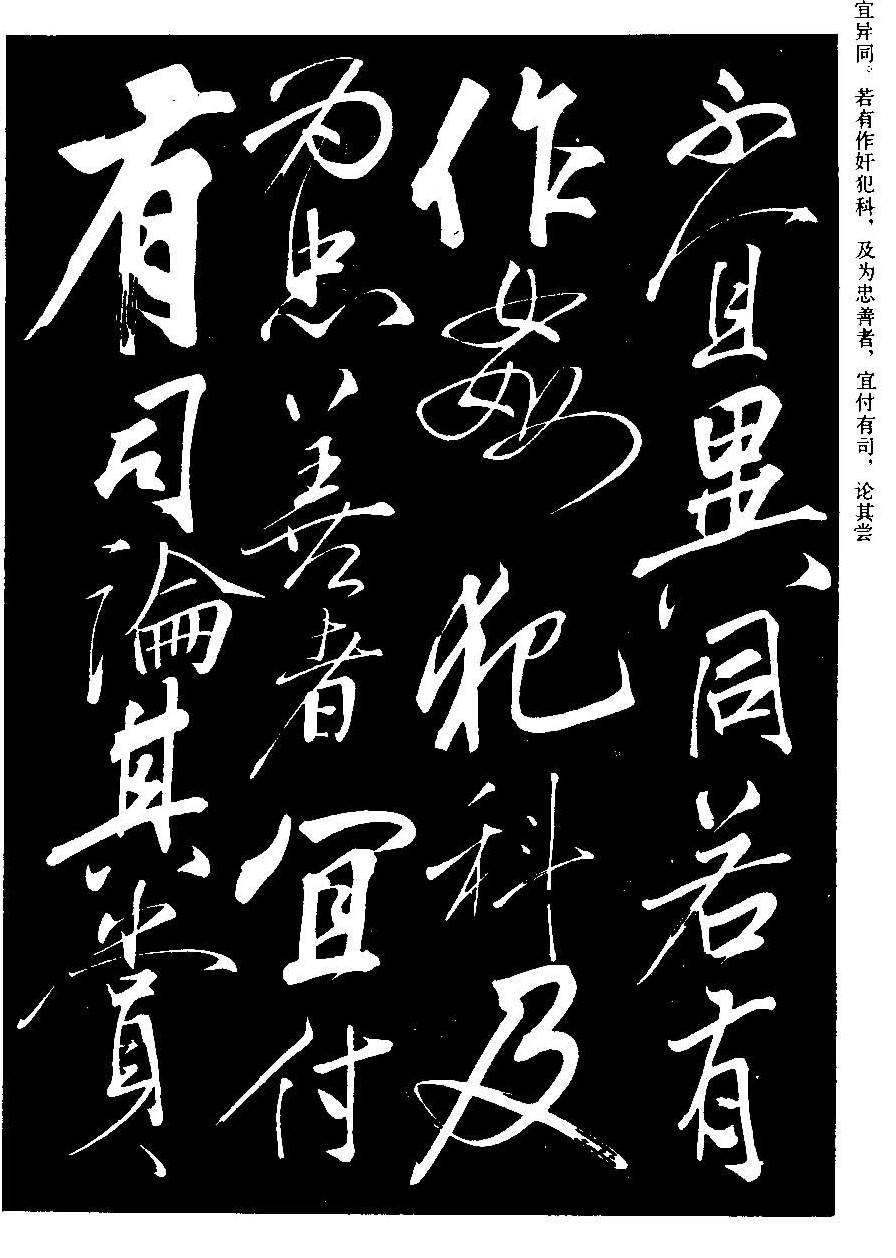 宜异同。若有作奸犯科，及为忠善者，宜付有司，论其尝
不宜異同若有
作姦犯科及
为忠善者宜付
有司論其賞